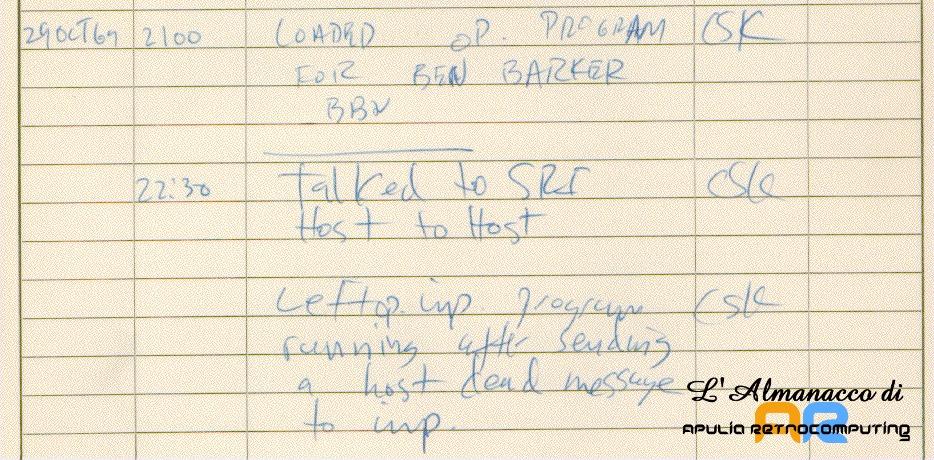 29OCT69 2100 LOADED OP. PROGRAM CSK
FOR BEN BARKER
BBN
22:30 Talked to SRI CSK
Host to Host
Left op. imp. program CSK
running after sending
a host dead message
to imp.
L'Almanacco di
AR
APULIA RETROCOMPUTING